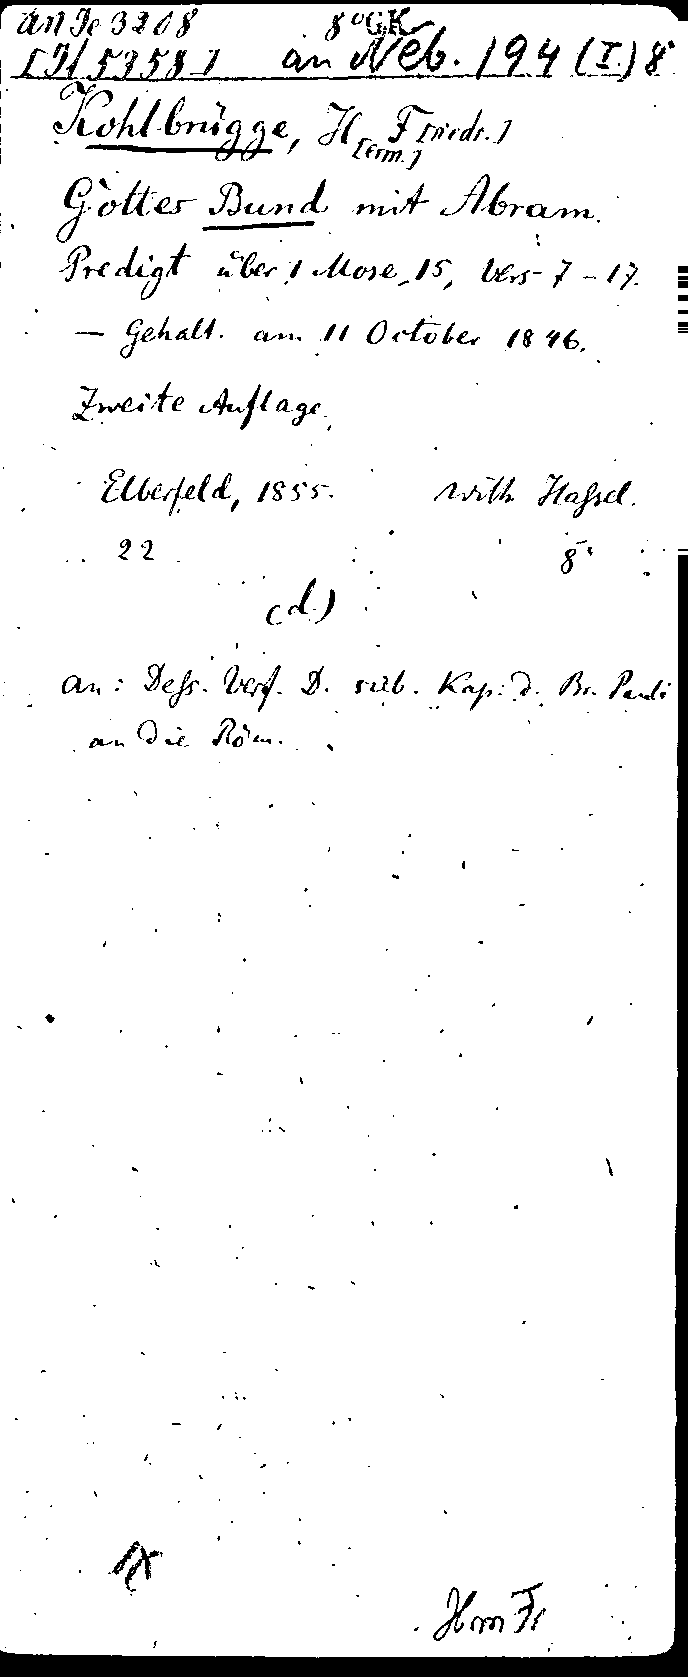 an Je 3208 8° GK
[H 53581 an Neb. 194 (I.) 8°
Kohlbrügge, H[erm.] F[riedr.]
Gottes Bund mit Abram.
Predigt über 1 Mose, 15, Vers 7-17.
— Gehalt. am 11 October 1846.
Zweite Auflage.
Elberfeld, 1855. Wilh. Haßel.
22 8°
(d.)
an: Deſs. Verf. D. sieb. Kap. d. Br. Pauli
an die Röm.
Hm Fr